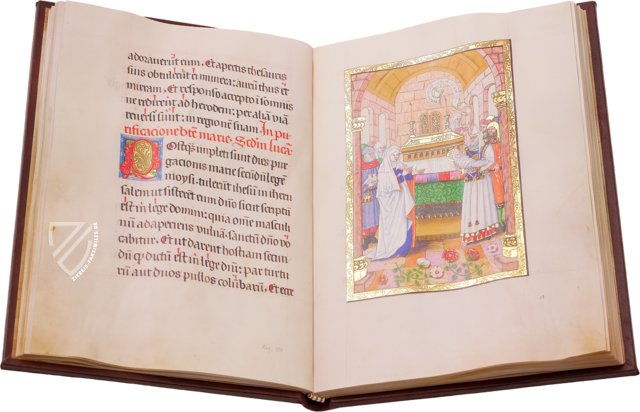 adoraverūt eum. Et apertis thesauris
suis obtulerūt ei munera: aurum thus et
mirram. Et responso accepto ī somnis
ne redirēt ad herodem: per aliā viā
reversi sunt: in regionem suam. In pu
rificatione bte marie. Scdm lucam
Postquā impleti sunt dies pur
gacionis marie secūdū legē
moysi: tulerūt ihesum in iheru
salem ut sisterēt eum dn̄o sicut scriptū
est in lege domini: quia omne mascu
linū adaperiens vulvā: sanctū dn̄o vo
cabitur. Et ut darent hostiam secun
dū qd dictū est in lege dn̄i: par turtu
rū aut duos pullos colūbarū. Et ecce
ZIEREIS FAKSIMILES.DE